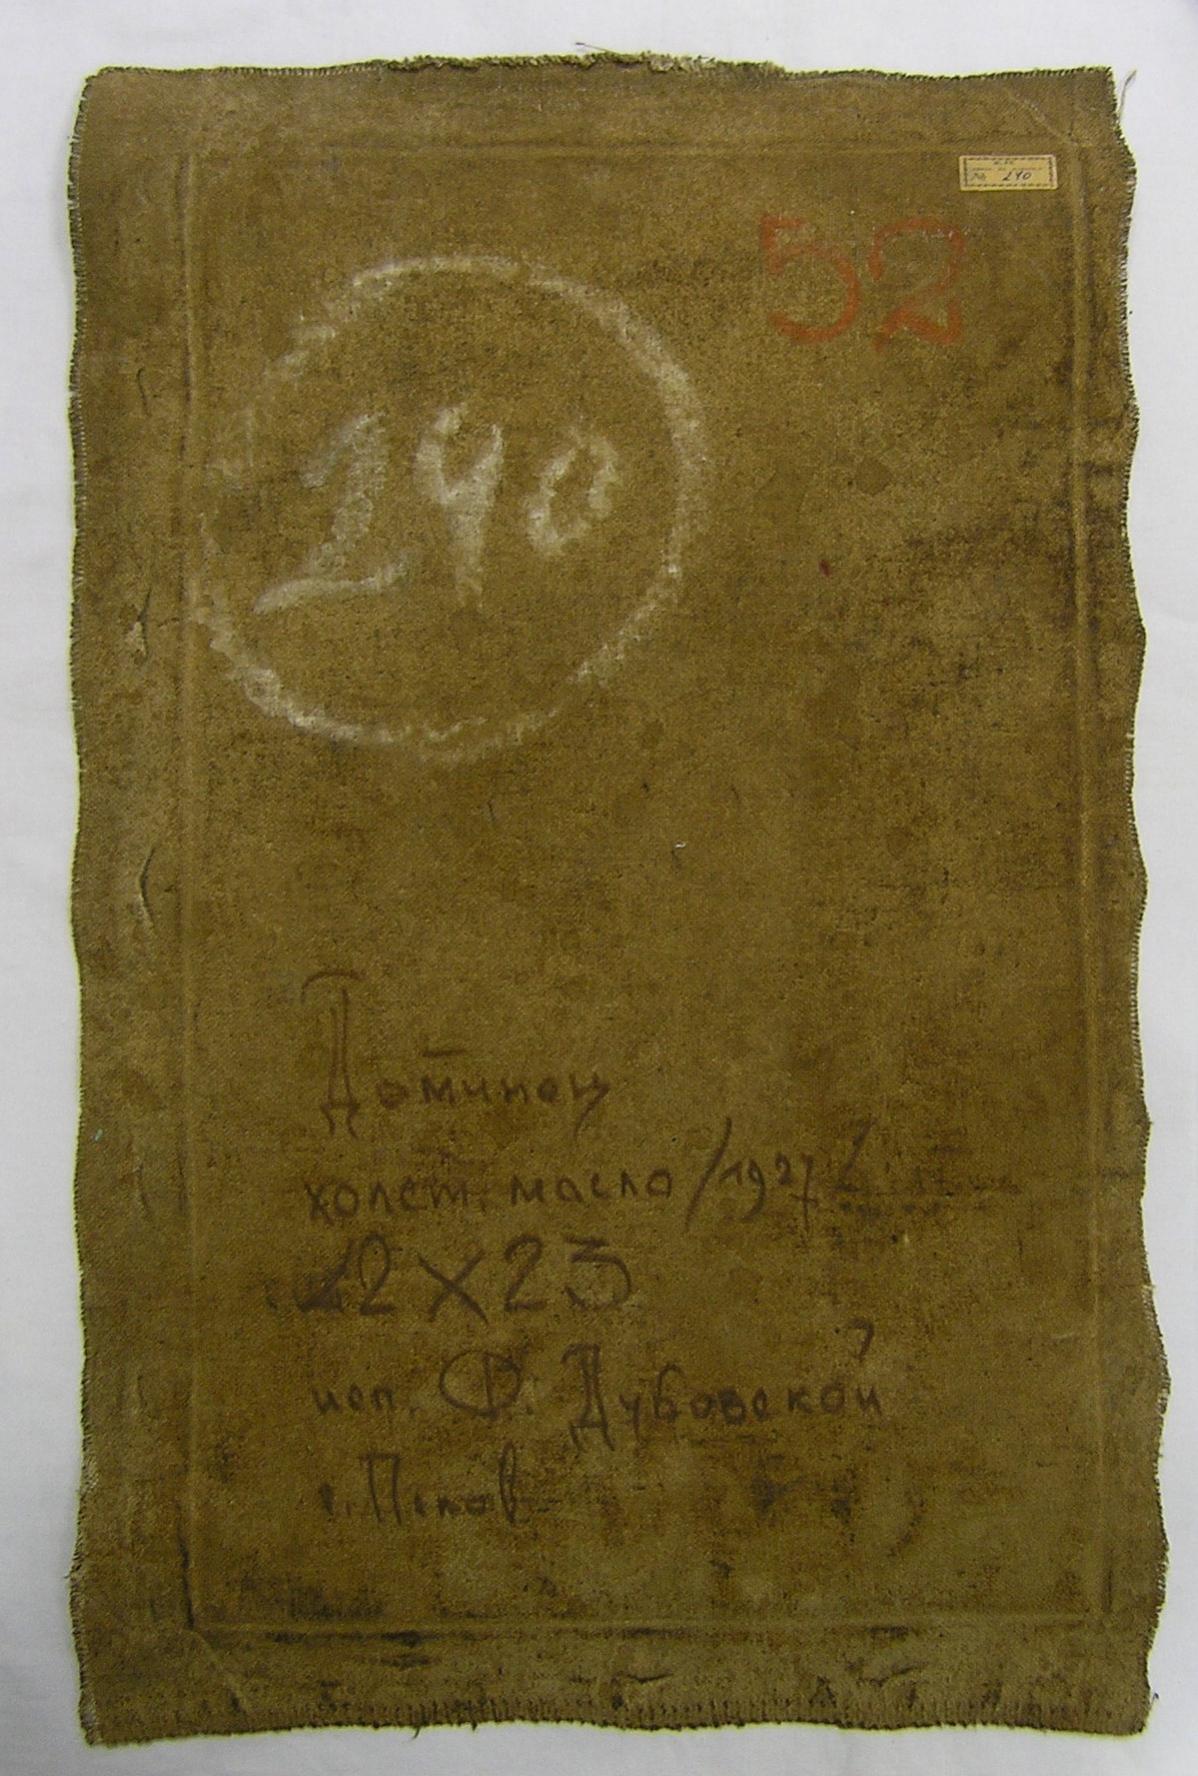 № 240
52
240
Доминец
холст, масло /1927/
22x23
исп. Ф. Дубовской
г. Псков